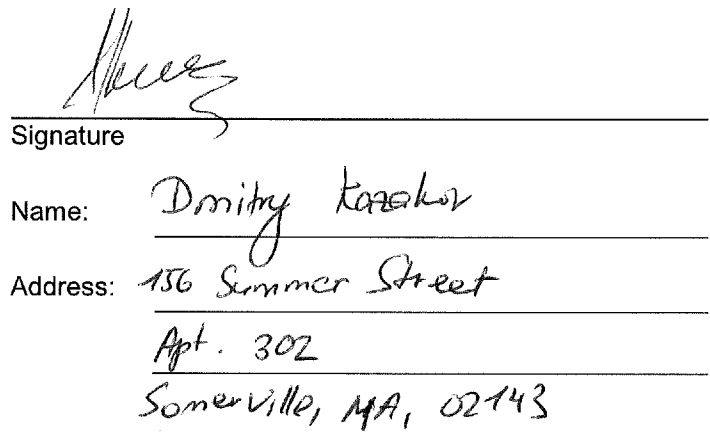 Signature
Name: Dmitry Kazakov
Address: 156 Summer Street
Apt. 302
Somerville, MA, 02143